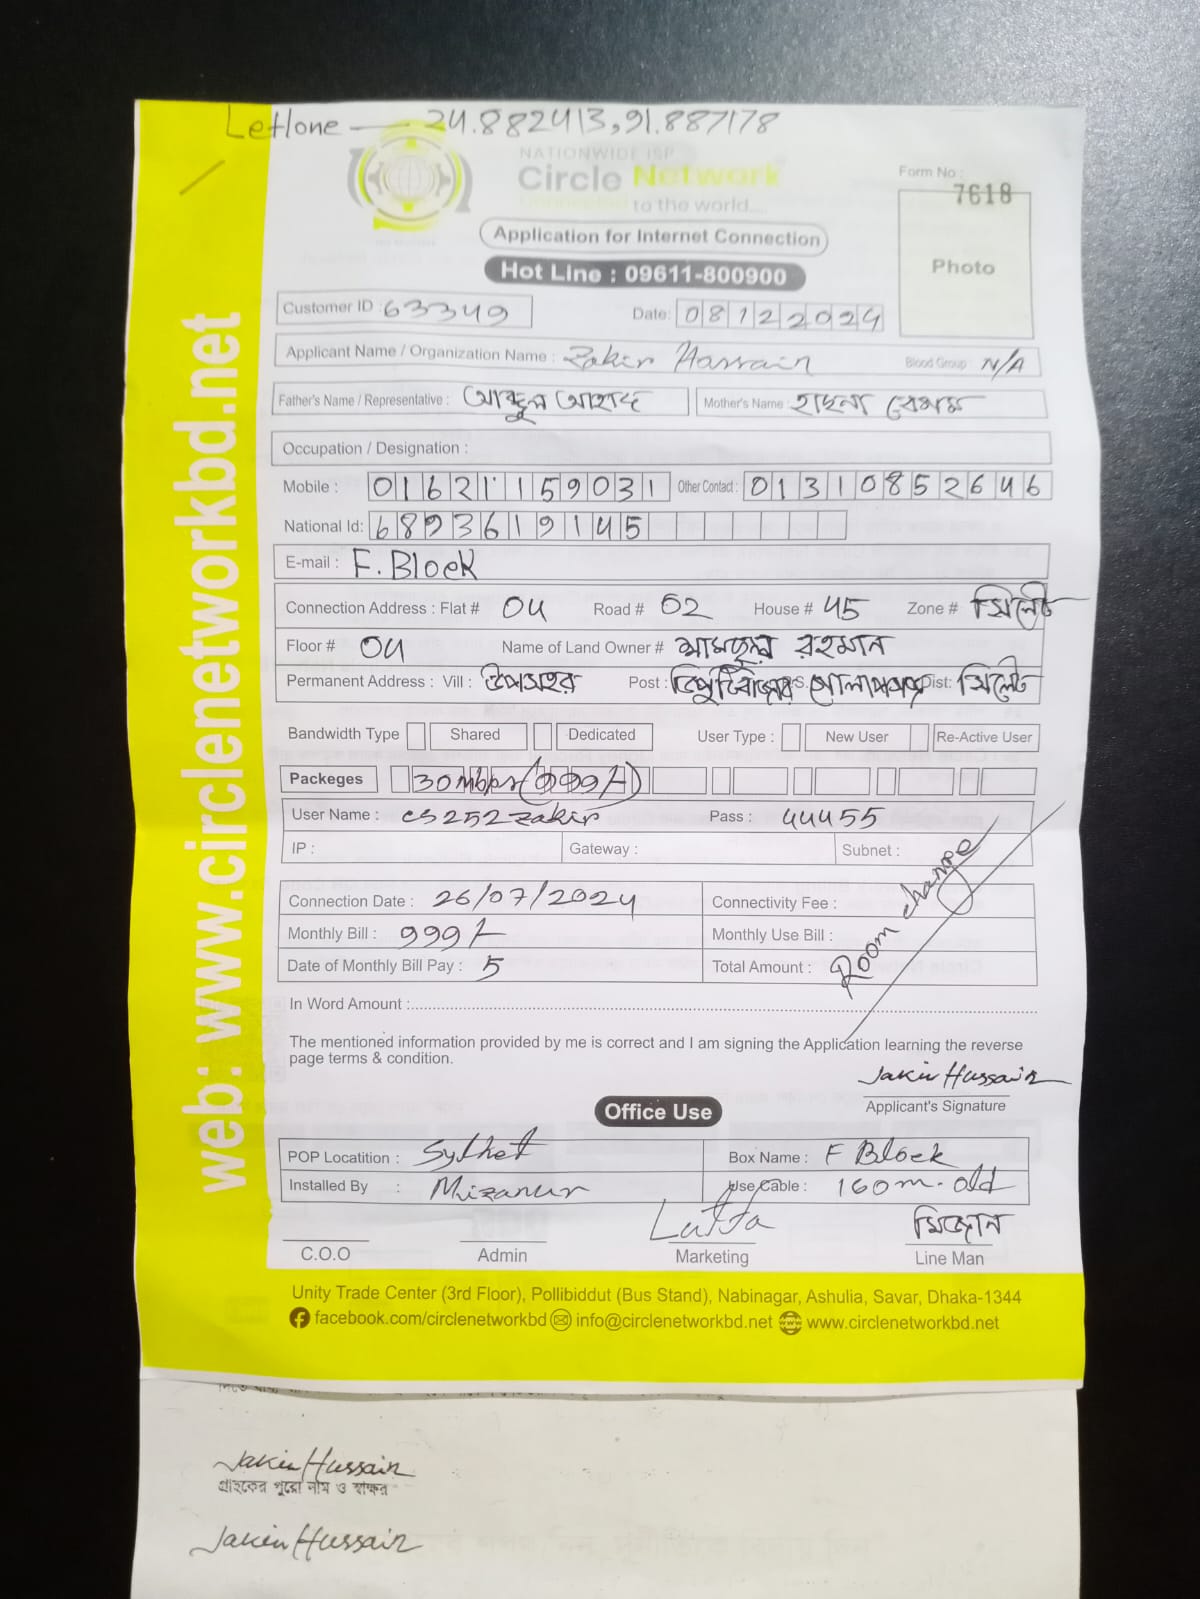 Letlone — 24.882413,91.887178
NATIONWIDE ISP
Circle Network
Connected to the world....
Form No :
7618
Photo
Application for Internet Connection
Hot Line : 09611-800900
Customer ID : 63349 Date: 08122024
Applicant Name / Organization Name : Zakir Hassain Blood Group : N/A
Father's Name / Representative : আব্দুল আহাদ Mother's Name : হাছনা বেগম
Occupation / Designation :
Mobile : 01621159031 Other Contact : 01310852646
National Id: 6893619145
E-mail : F. Block
Connection Address : Flat # 04 Road # 02 House # 45 Zone # সিলেট
Floor # 04 Name of Land Owner # রহমান
Permanent Address : Vill : উপশহর Post : P.S. Dist: সিলেট
Bandwidth Type Shared Dedicated User Type : New User Re-Active User
Packeges 30 mbps (999/-)
User Name : cs252zakir Pass : 44455
IP : Gateway : Subnet :
Room change
Connection Date : 26/07/2024 Connectivity Fee :
Monthly Bill : 999/- Monthly Use Bill :
Date of Monthly Bill Pay : 5 Total Amount :
In Word Amount :
The mentioned information provided by me is correct and I am signing the Application learning the reverse
page terms & condition.
Jakir Hussain
Applicant's Signature
Office Use
POP Locatition : Sylhet Box Name : F Block
Installed By : Mizanur Use Cable : 160m. old
মিজান
C.O.O Admin Marketing Line Man
Unity Trade Center (3rd Floor), Pollibiddut (Bus Stand), Nabinagar, Ashulia, Savar, Dhaka-1344
facebook.com/circlenetworkbd info@circlenetworkbd.net www.circlenetworkbd.net
web: www.circlenetworkbd.net
Jakir Hussain
গ্রাহকের পুরো নাম ও স্বাক্ষর
Jakir Hussain